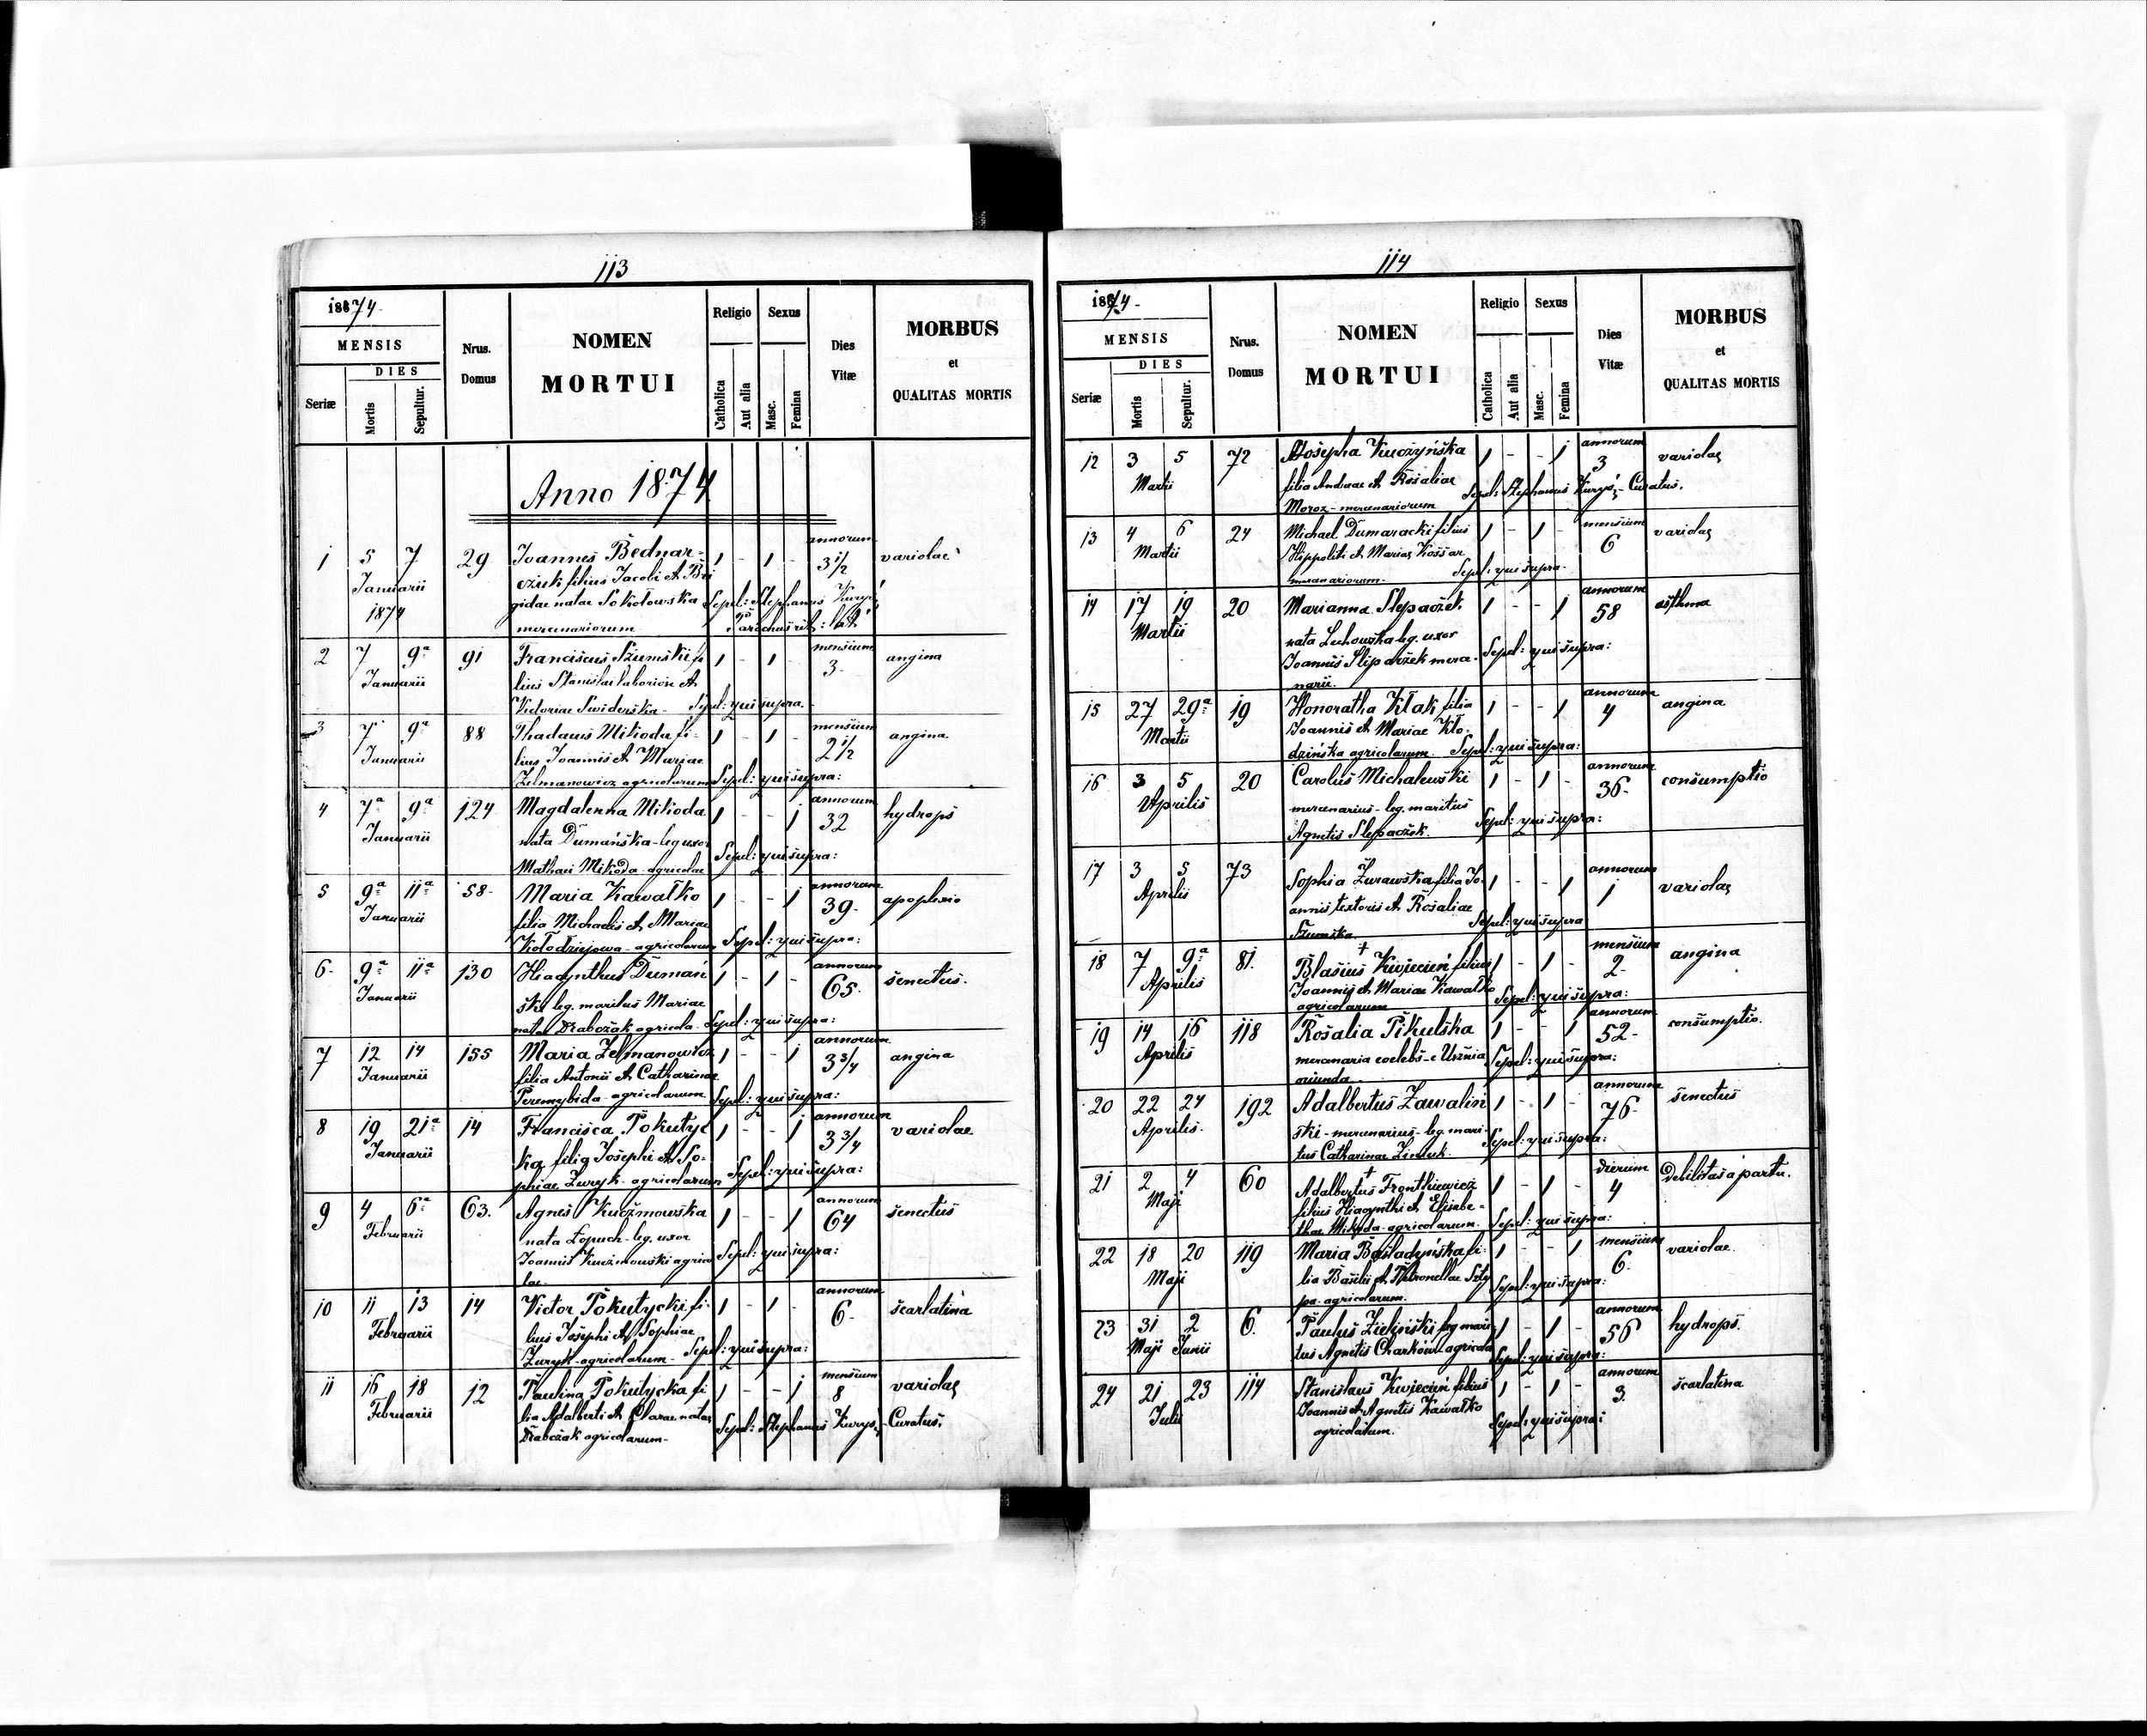 113
1874
MENSIS
DIES
Seriæ
Mortis
Sepultur.
Nrus. Domus
NOMEN
MORTUI
Religio
Catholica
Aut alia
Sexus
Masc.
Femina
Dies Vitæ
MORBUS
et
QUALITAS MORTIS
Anno 1874
1 5 7 29 Joannes Bednar- 1 - 1 - annorum 3 1/2 variolae
Januarii cziuk filius Jacobi et Bri
1874 gidae natae Sokołowska Sepel: Stephanus Kuryś
mercenariorum Parochus rit: lat:
2 7 9a 91 Franciscus Szumski fi 1 - 1 - mensium 3 angina
Januarii lius Stanislai laborior et
Victoriae Swiderska - Sepel: qui supra.
3 7 9a 88 Thadaeus Mikoda fi- 1 - 1 - mensium 2 1/2 angina
Januarii lius Joannis et Mariae
Zelmanowicz agricolarum Sepel: qui supra:
4 7a 9a 124 Magdalenna Mikoda 1 - - 1 annorum 32 hydrops
Januarii nata Dumańska - leg uxor
Mathaei Mikoda agricolae Sepel: qui supra:
5 9a 11a 58 Maria Kawałko 1 - - 1 annorum 39 apoplexio
Januarii filia Michaelis et Mariae
Kołodziejowa - agricolarum Sepel: qui supra:
6 9a 11a 130 Hiacynthus Dumań 1 - 1 - annorum 65 senectus.
Januarii ski leg. maritus Mariae
natae Drabczak agricola. Sepel: qui supra:
7 12 14 155 Maria Zelmanowicz 1 - - 1 annorum 3 3/4 angina
Januarii filia Antonii et Catharinae
Peremybida - agricolarum Sepel: qui supra:
8 19 21a 14 Francisca Pokutyc 1 - - 1 annorum 3 3/4 variolae
Januarii ka filia Josephi et So-
phiae Zuryk - agricolarum Sepel: qui supra:
9 4 6a 63. Agnes Kuczmowska 1 - - 1 annorum 64 senectus
Februarii nata Łopuch - leg. uxor
Joannis Kuczmowski agrico Sepel: qui supra:
lae
10 11 13 14 Victor Pokutycki fi- 1 - 1 - annorum 6 scarlatina
Februarii lius Josephi et Sophiae
Zuryk - agricolarum - Sepel: qui supra:
11 16 18 12 Paulina Pokutycka fi 1 - - 1 mensium 8 variolae
Februarii lia Adalberti et Clarae natae Sepel: Stephanus Kuryś - Curatus.
Drabczak agricolarum -
114
1874
MENSIS
DIES
Seriæ
Mortis
Sepultur.
Nrus. Domus
NOMEN
MORTUI
Religio
Catholica
Aut alia
Sexus
Masc.
Femina
Dies Vitæ
MORBUS
et
QUALITAS MORTIS
12 3 5 72 Josepha Kuczyńska 1 - - 1 annorum 3 variolae
Martii filia Andreae et Rosaliae Sepel: Stephanus Kuryś - Curatus.
Moroz - mercenariorum
13 4 6 24 Michael Dumaracki filius 1 - 1 - mensium 6 variolae
Martii Hippoliti et Mariae Kossar
mercenariorum - Sepel: qui supra.
14 17 19 20 Marianna Slepaczek 1 - - 1 annorum 58 asthma
Martii nata Luhowska leg. uxor
Joannis Slipaczek merce- Sepel: qui supra:
narii.
15 27 29a 19 Honoratha Kłak filia 1 - - 1 annorum 4 angina
Martii Joannis et Mariae Kło-
dzińska agricolarum. Sepel: qui supra:
16 3 5 20 Carolus Michalewski 1 - 1 - annorum 36 consumptio
Aprilis mercenarius - leg. maritus
Agnetis Slepaczek. Sepel: qui supra:
17 3 5 73 Sophia Zurawska filia Jo- 1 - - 1 annorum 1 variolae
Aprilis annis textoris et Rosaliae
Szumska. Sepel: qui supra
18 7 9a 81. Blasius Kwiecień filius 1 - 1 - mensium 2 angina
Aprilis Joannis et Mariae Kawałko
agricolarum Sepel: qui supra:
19 14 16 118 Rosalia Pikulska 1 - - 1 annorum 52 consumptio.
Aprilis mercenaria coelebs - e Usznia Sepel: qui supra:
oriunda.
20 22 24 192 Adalbertus Zawaliń 1 - 1 - annorum 76 senectus
Aprilis. ski - mercenarius - leg. mari-
tus Catharinae Sepel: qui supra:
21 2 4 60 Adalbertus Frontkiewicz 1 - 1 - dierum 4 Debilitas a partu.
Maji filius Hiacynthi et Elisabe-
thae Mikoda - agricolarum. Sepel: qui supra:
22 18 20 119 Maria fi- 1 - - 1 mensium 6 variolae.
Maji lia Basilii et Petronellae Szty
pa - agricolarum. Sepel: qui supra:
23 31 2 6. Paulus Zieliński leg mari- 1 - 1 - annorum 56 hydrops.
Maji Junii tus Agnetis Charków agricola Sepel: qui supra:
24 21 23 114 Stanislaus Kwiecień filius 1 - 1 - annorum 3 scarlatina
Julii Joannis et Agnetis Kawałko
agricolarum. Sepel: qui supra: